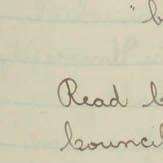 " b
Read b
kouncil